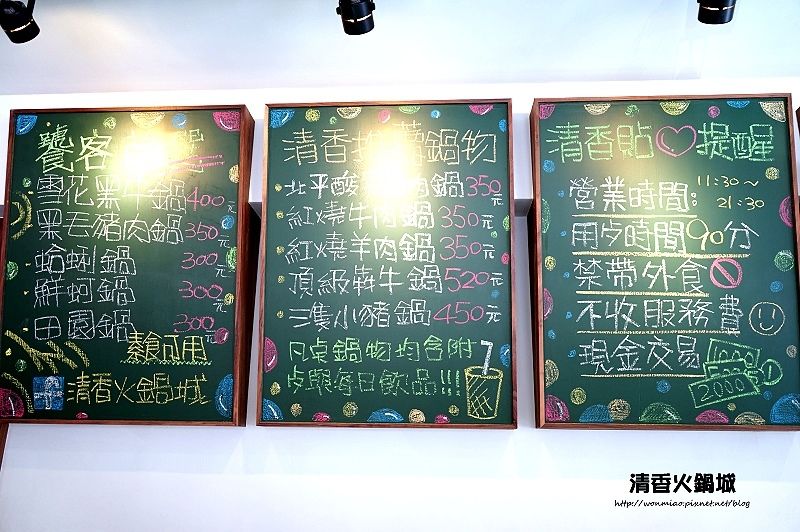 饕客
雪花黑牛鍋 400元
黑毛豬肉鍋 350元
蛤蜊鍋 300元
鮮蚵鍋 300元
田園鍋 300元
素食可用
f 清香火鍋城
清香推薦鍋物
北平酸 肉鍋 350元
紅燒牛肉鍋 350元
紅燒羊肉鍋 350元
頂級犇牛鍋 520元
三隻小豬鍋 450元
凡桌鍋物均含附
點與每日飲品!!!
清香貼♡提醒
營業時間: 11:30~
21:30
用歺時間90分
禁帶外食
不收服務費
現金交易
2000
清香火鍋城
http://wonmiao.pixnet.net/blog